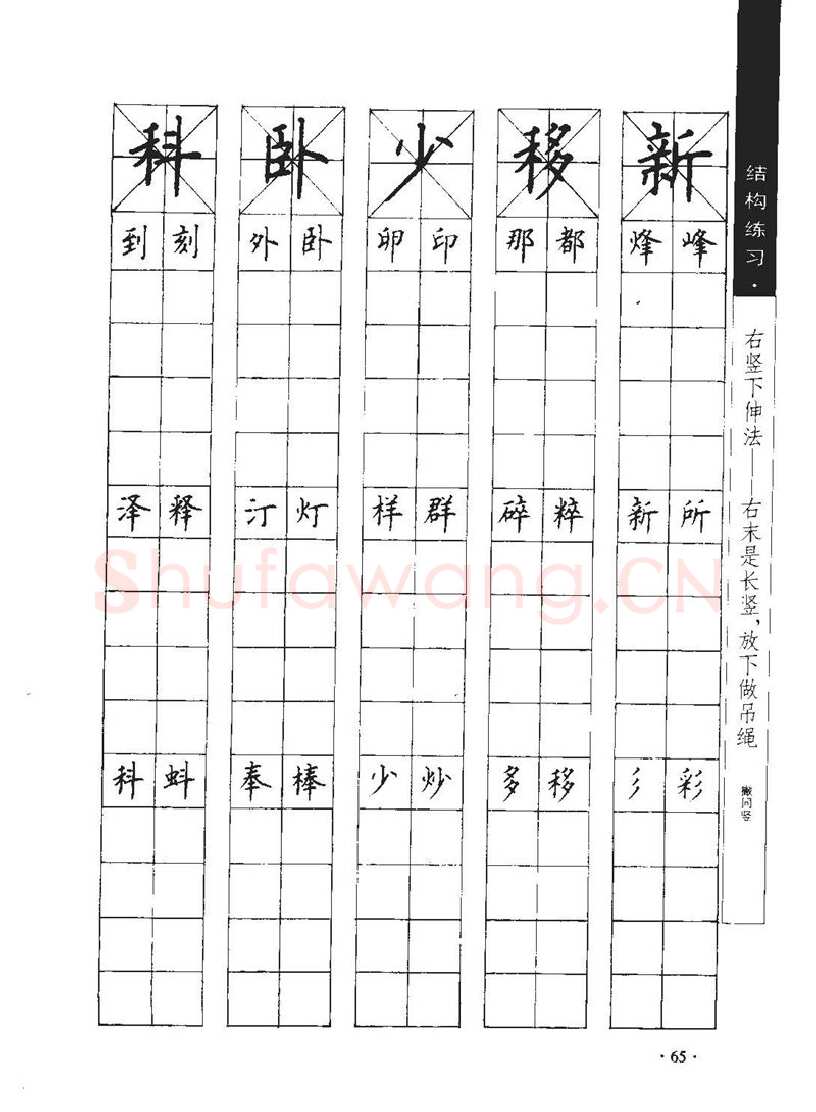 结构练习·
右竖下伸法——右末是长竖，放下做吊绳
撇同竖
科 卧 少 移 新
到 刻 外 卧 卵 印 那 都 烽 峰
泽 释 汀 灯 样 群 碎 粹 新 所
科 蚪 奉 棒 少 炒 多 移 彡 彩
Shufawang.CN
·65·